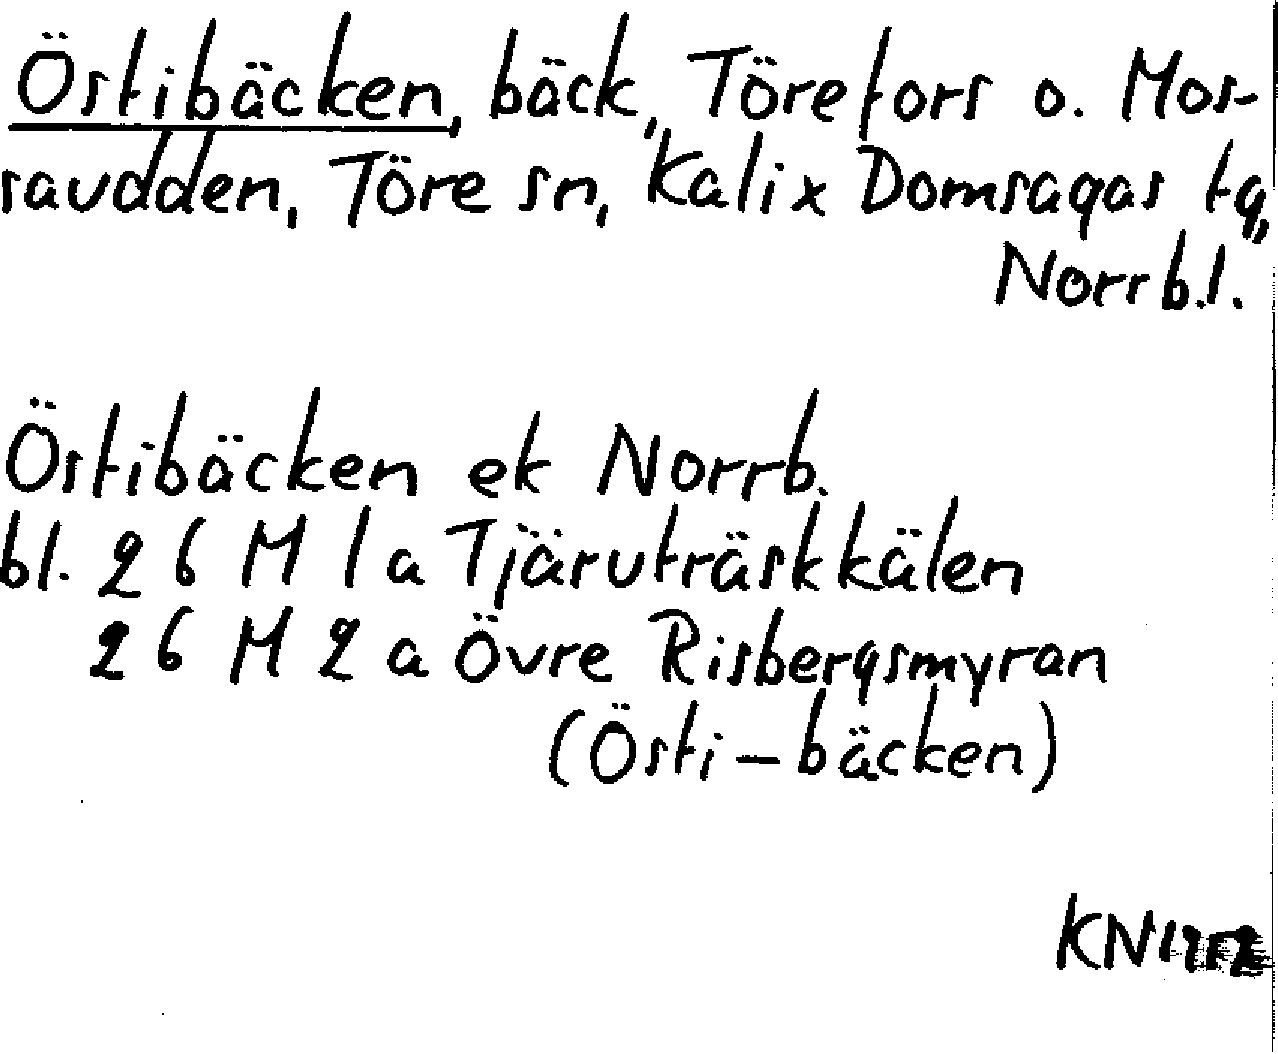 Östibäcken, bäck, Törefors o. Mos-
saudden, Töre sn, Kalix Domsagas tg,
Norrb.l.
Östibäcken ek Norrb.
bl. 26 M 1 a Tjäruträskkälen
26 M 2 a Övre Risbergsmyran
(Östi-bäcken)
KN